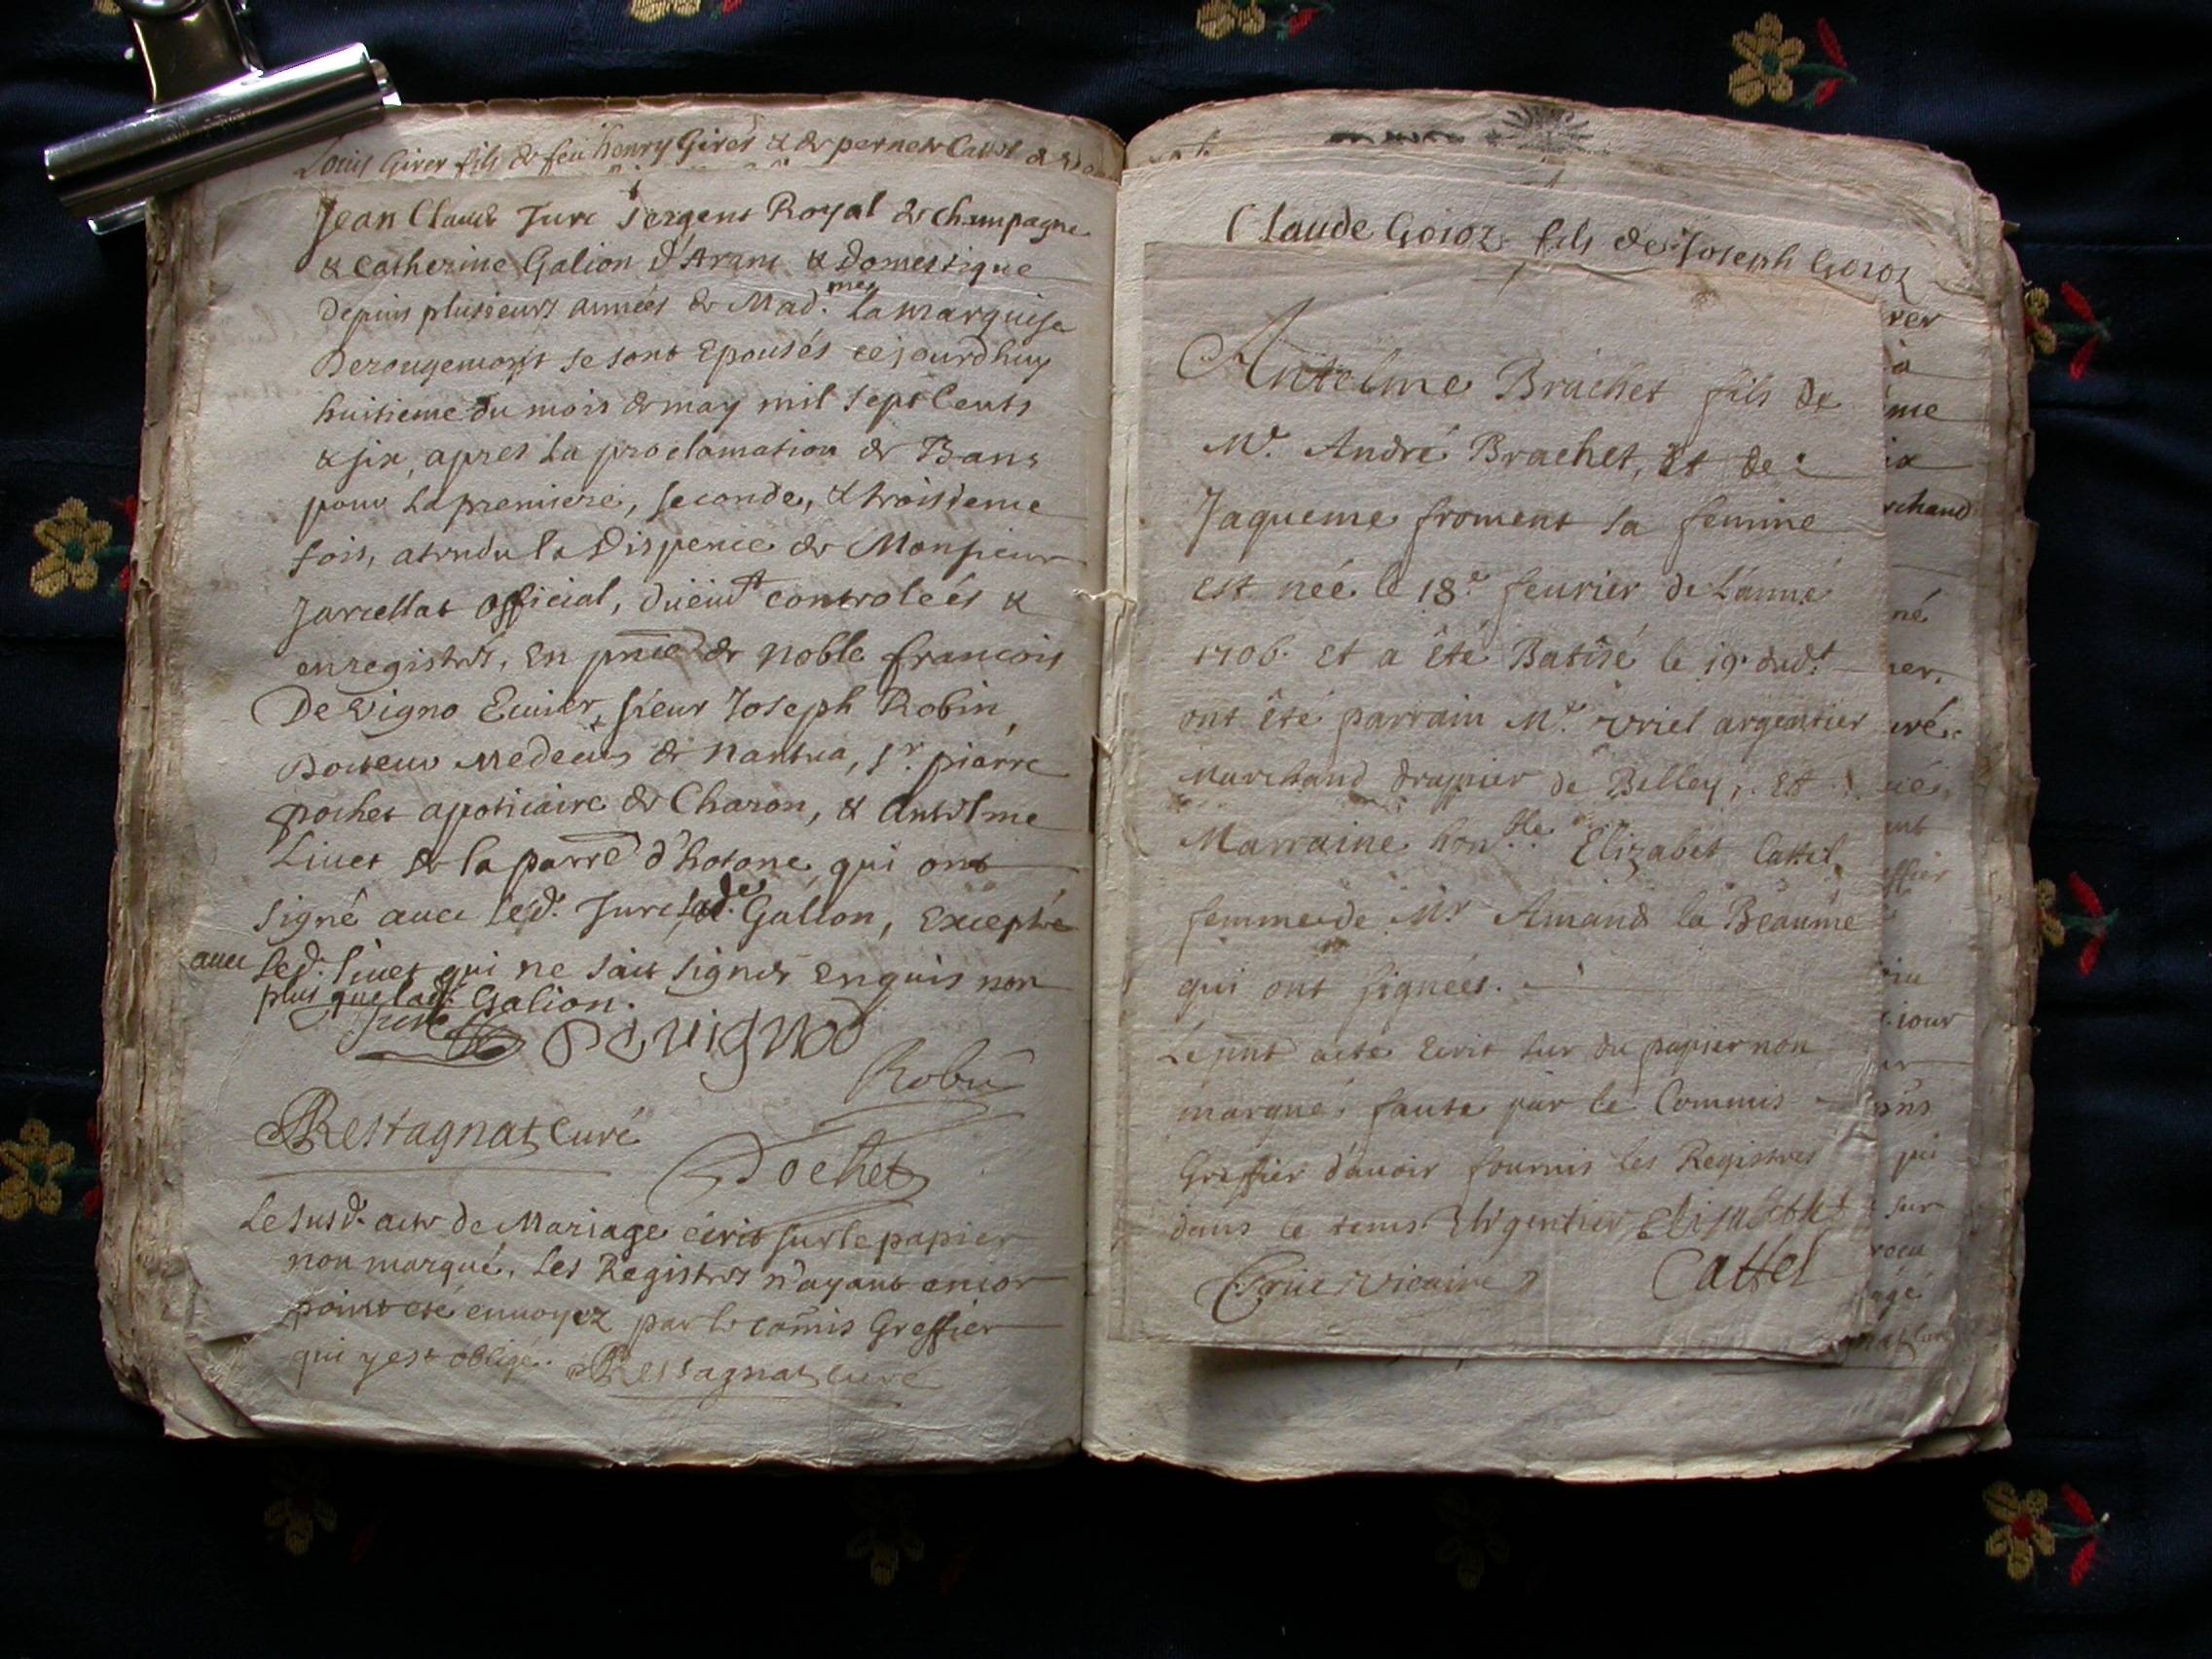 Louis Girer fils de feu henry Girer & de pernete Cattel
Jean Claude Jure Sergent Royal de champagne
& Catherine Galion d'Aranc & Domestique
Depuis plusieurs années de Mad.me La marquise
Derougemont se sont Epousés cejourdhuy
huitieme du mois de may mil sept Cents
& six, apres La proclamation de Bans
pour La premiere, seconde, & troisieme
fois, atendu la Dispence de Monsieur
Jarcellat Official, duëmt controleés &
enregistrés, en pnce de noble françois
De Vigno Ecuier, sieur Joseph Robin
Docteur Medecin de Nantua, sr. piérre
pochet apoticaire de Charon, & Antelme
Livet de la parre d'hotone, qui ont
signé avec led. Jure, lad.e Galion, Excepté
avec led. livet qui ne sait signer enquis non
plus que lad. Galion.
Jure Devignod
Robin
Restagnat Curé
Pochet
Le susd. acte de Mariage écrit sur le papier
non marqué, Les Registres n'ayant encor
point eté envoyez par le comis Greffier
qui y est obligé. Restagnat curé
Claude Goioz fils de Joseph Goioz
Antelme Brachet fils de
Mr. André Brachet, Et de
Jaqueme froment sa femme
est née le 18.e feurier de L'anné
1706. Et a été Batisé le 19. dud.t
ont été parrain Mr. Vriel argentier
Marchand drappier de Belley, Et
Marraine hon.ble Elizabet Cattel,
femme de Mr Amand la Beaume
qui ont signées.
Le pnt acte Ecrit sur du papier non
marqué, faute par le Commis
Greffier d'auoir fournis les Registres
dans le tems. V Argentier Elisabet
Cattel
vicaire
rer
à
me
ix
rchand
né
er.
uré.
ent
effier
jour
qui
sur
reçu
agé